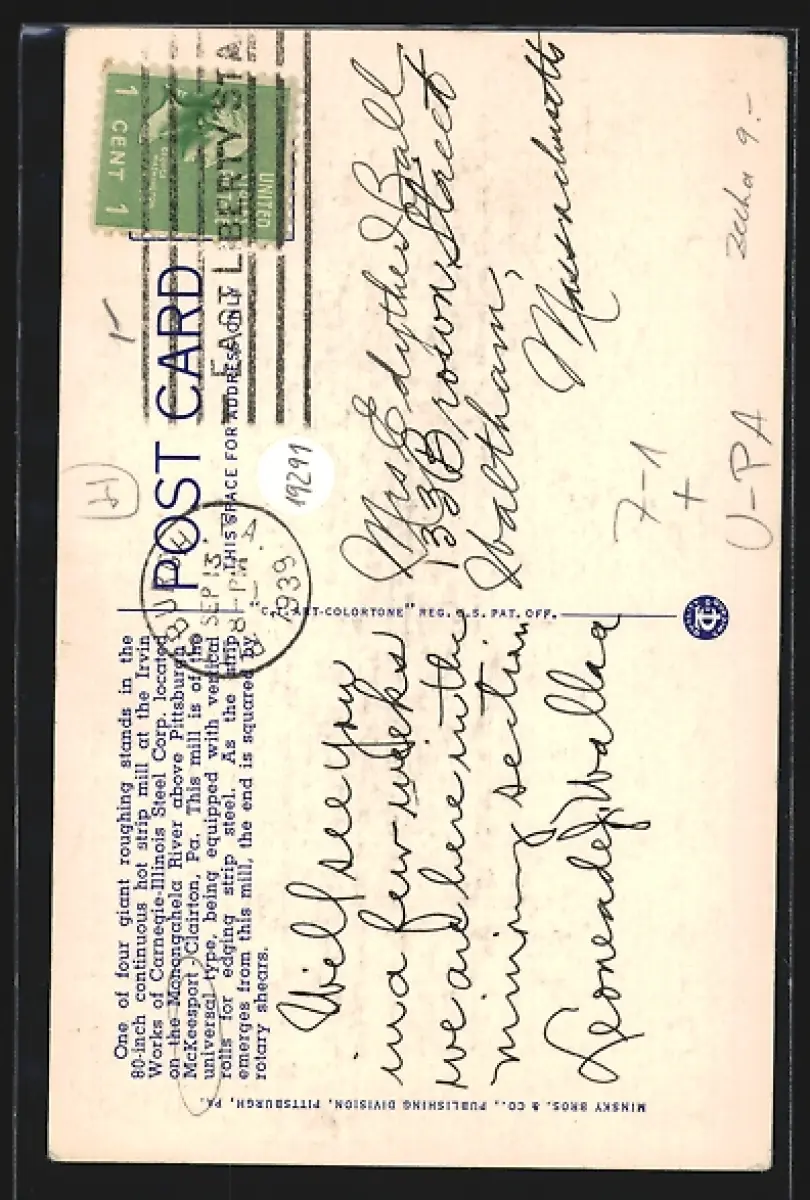 One of four giant roughing stands in the
80-inch continuous hot strip mill at the Irvin
Works of Carnegie-Illinois Steel Corp. located
on the Monongahela River above Pittsburgh
McKeesport-Clairton, Pa. This mill is of the
universal type, being equipped with vertical
rolls for edging strip steel. As the strip
emerges from this mill, the end is squared by
rotary shears.
Will see you
in a few weeks
we are here in the
mining section
MINSKY BROS. & CO., PUBLISHING DIVISION, PITTSBURGH, PA.
"C.T. ART-COLORTONE" REG. U.S. PAT. OFF.
POST CARD
THIS SPACE FOR ADDRESS ONLY
SEP 13
8-PM
1939
EAST LIBERTY STA
UNITED
GEORGE WASHINGTON
1 CENT 1
19291
Mrs Edythe Ball
133 Brown Street
Waltham,
Massachusetts
1-
7-1
+
U-PA
9.-